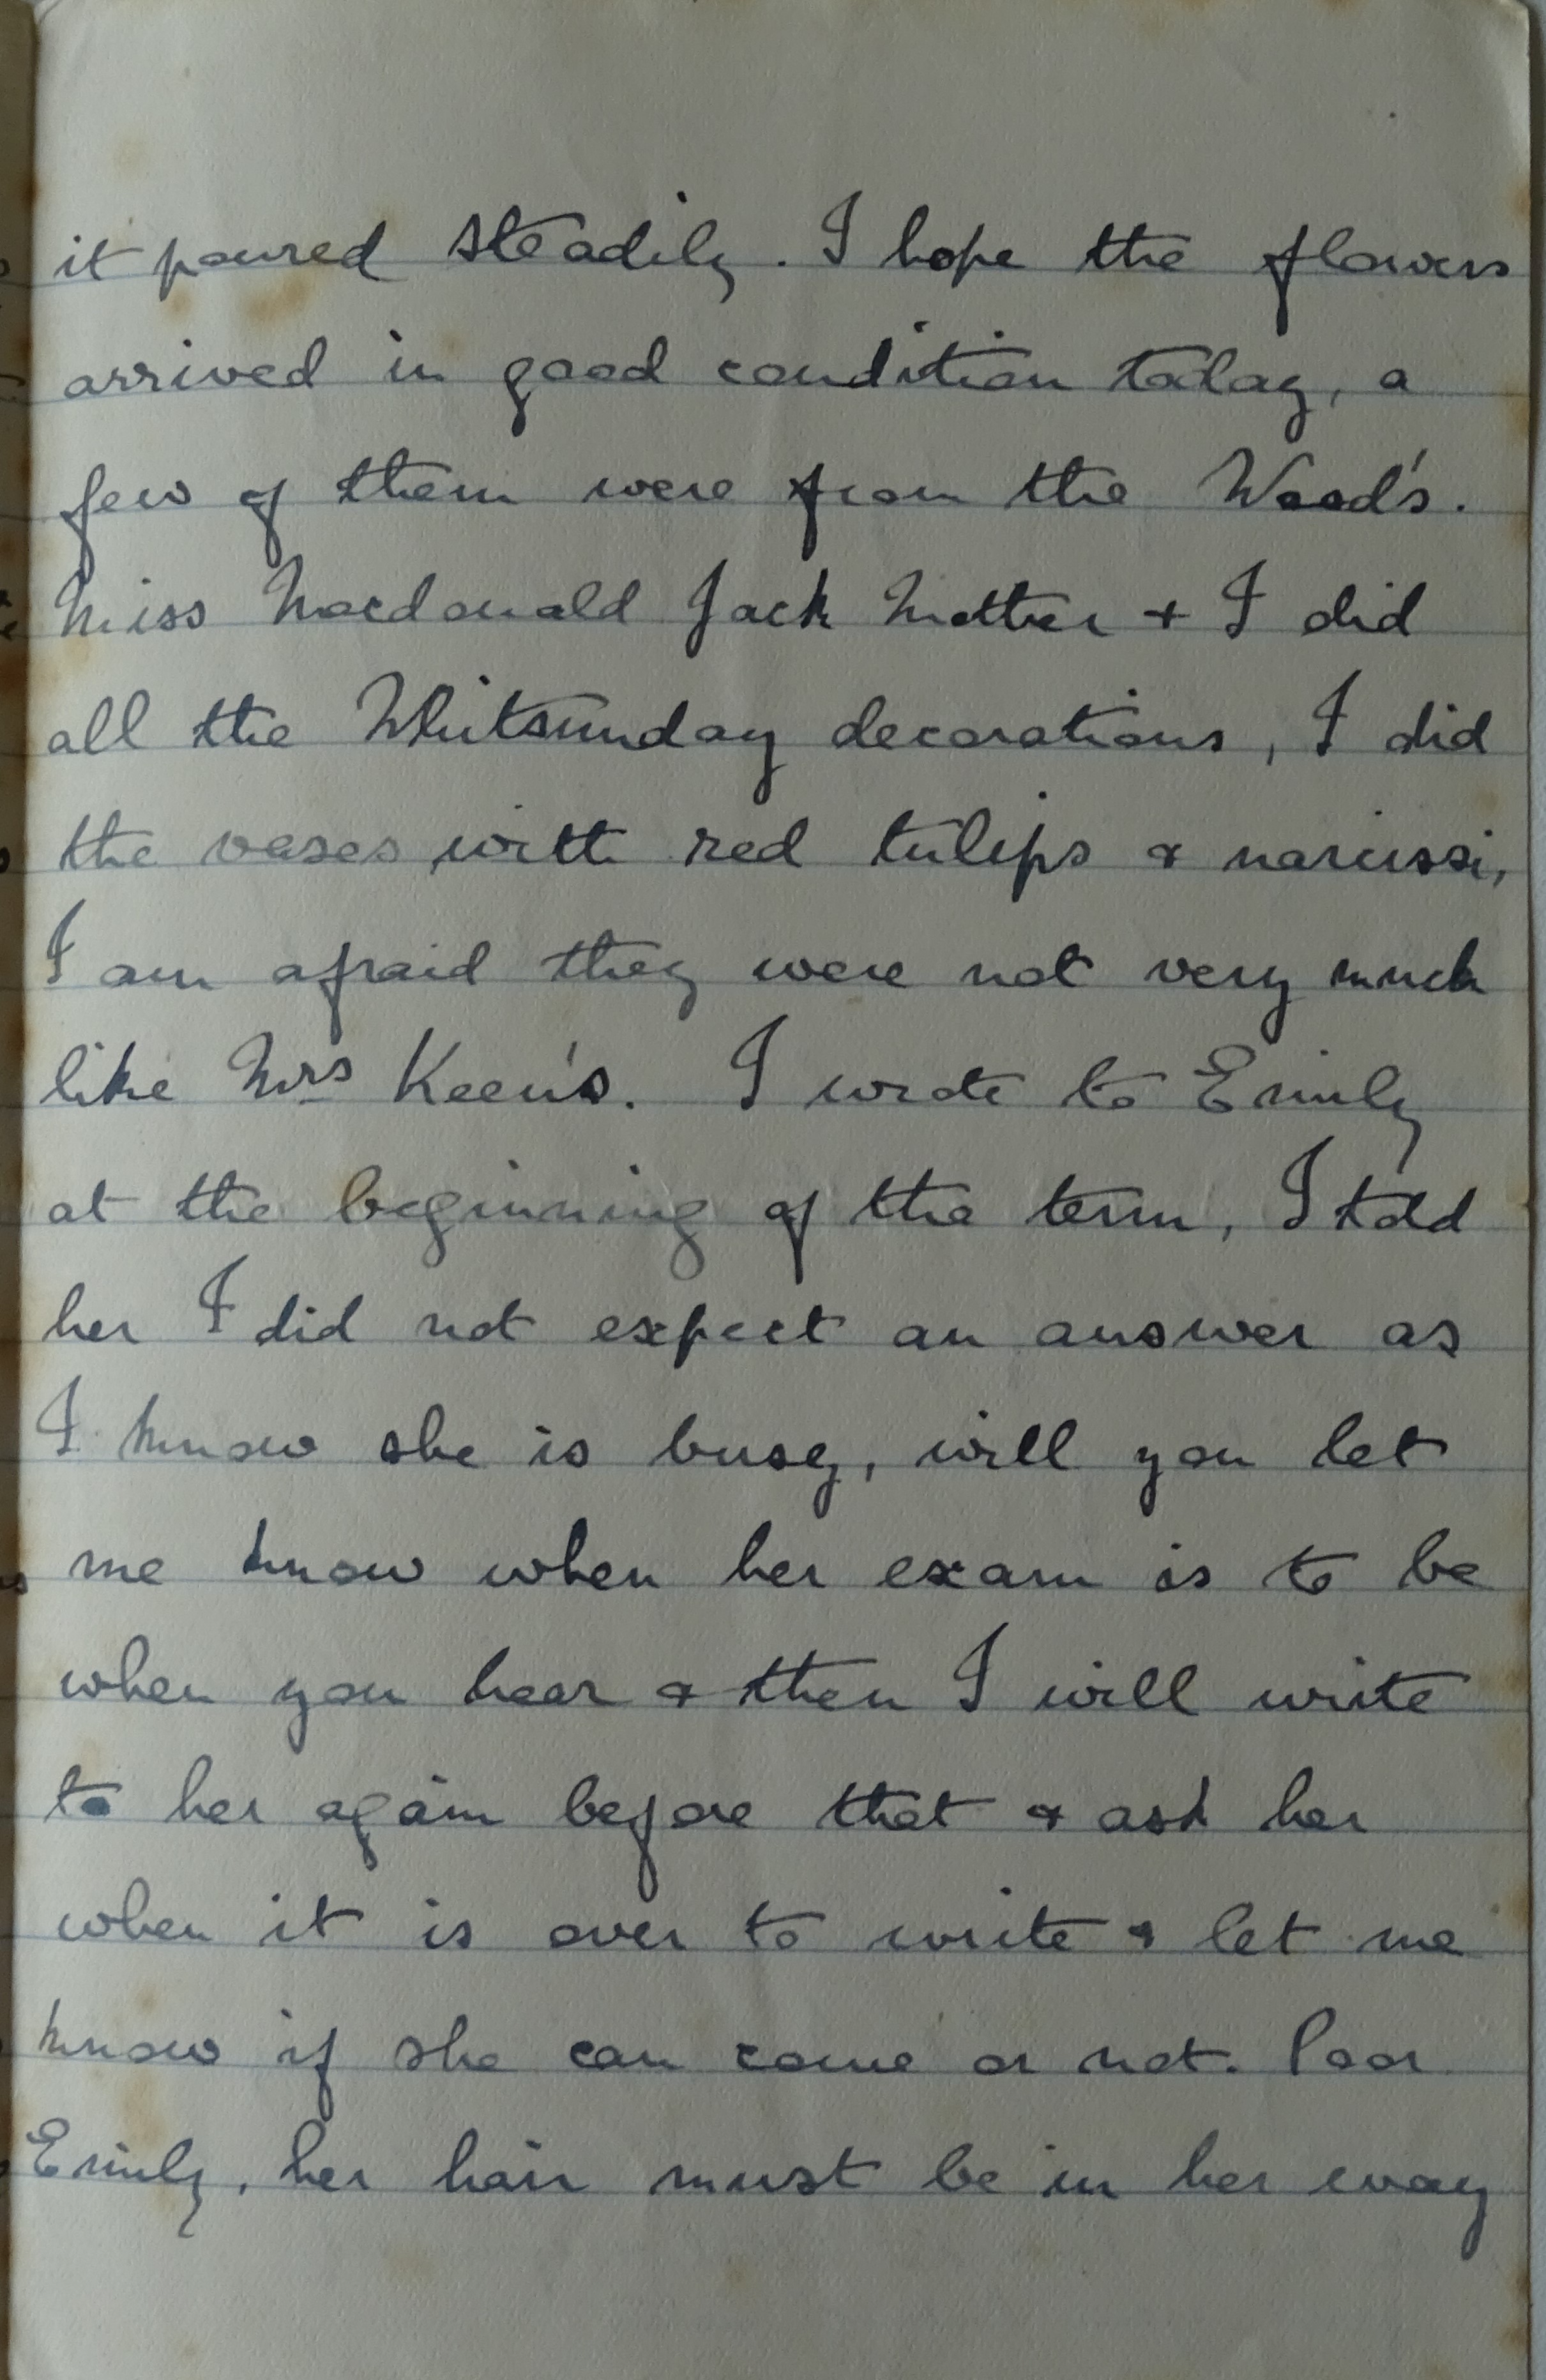 it poured steadily. I hope the flowers
arrived in good condition today, a
few of them were from the Wood's.
Miss Macdonald Jack Mother + I did
all the Whitsunday decorations, I did
the vases with red tulips & narcissi,
I am afraid they were not very much
like Mrs Keen's. I wrote to Emily
at the beginning of the term, I told
her I did not expect an answer as
I know she is busy, will you let
me know when her exam is to be
when you hear & then I will write
to her again before that & ask her
when it is over to write & let me
know if she can come or not. Poor
Emily, her hair must be in her way